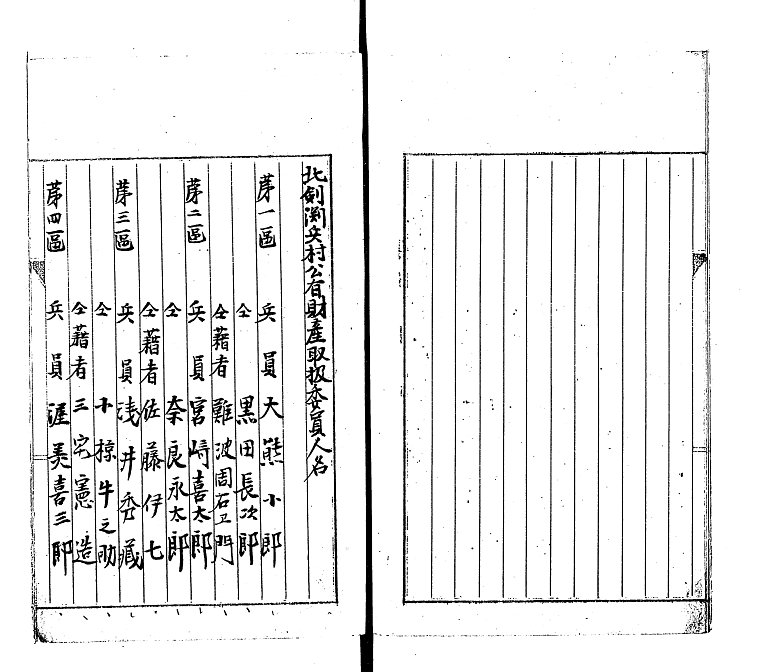 北剣渕兵村公有財産取扱委員人名
第一區 兵員 大熊小一郎
仝 黒田長次郎
仝 藉者 難波周右エ門
第二區 兵員 宮崎喜太郎
仝 奈良永太郎
仝 藉者 佐藤伊七
第三區 兵員 浅井秀蔵
仝 小椋牛之助
仝 藉者 三宅憲造
第四區 兵員 渥美喜三郎